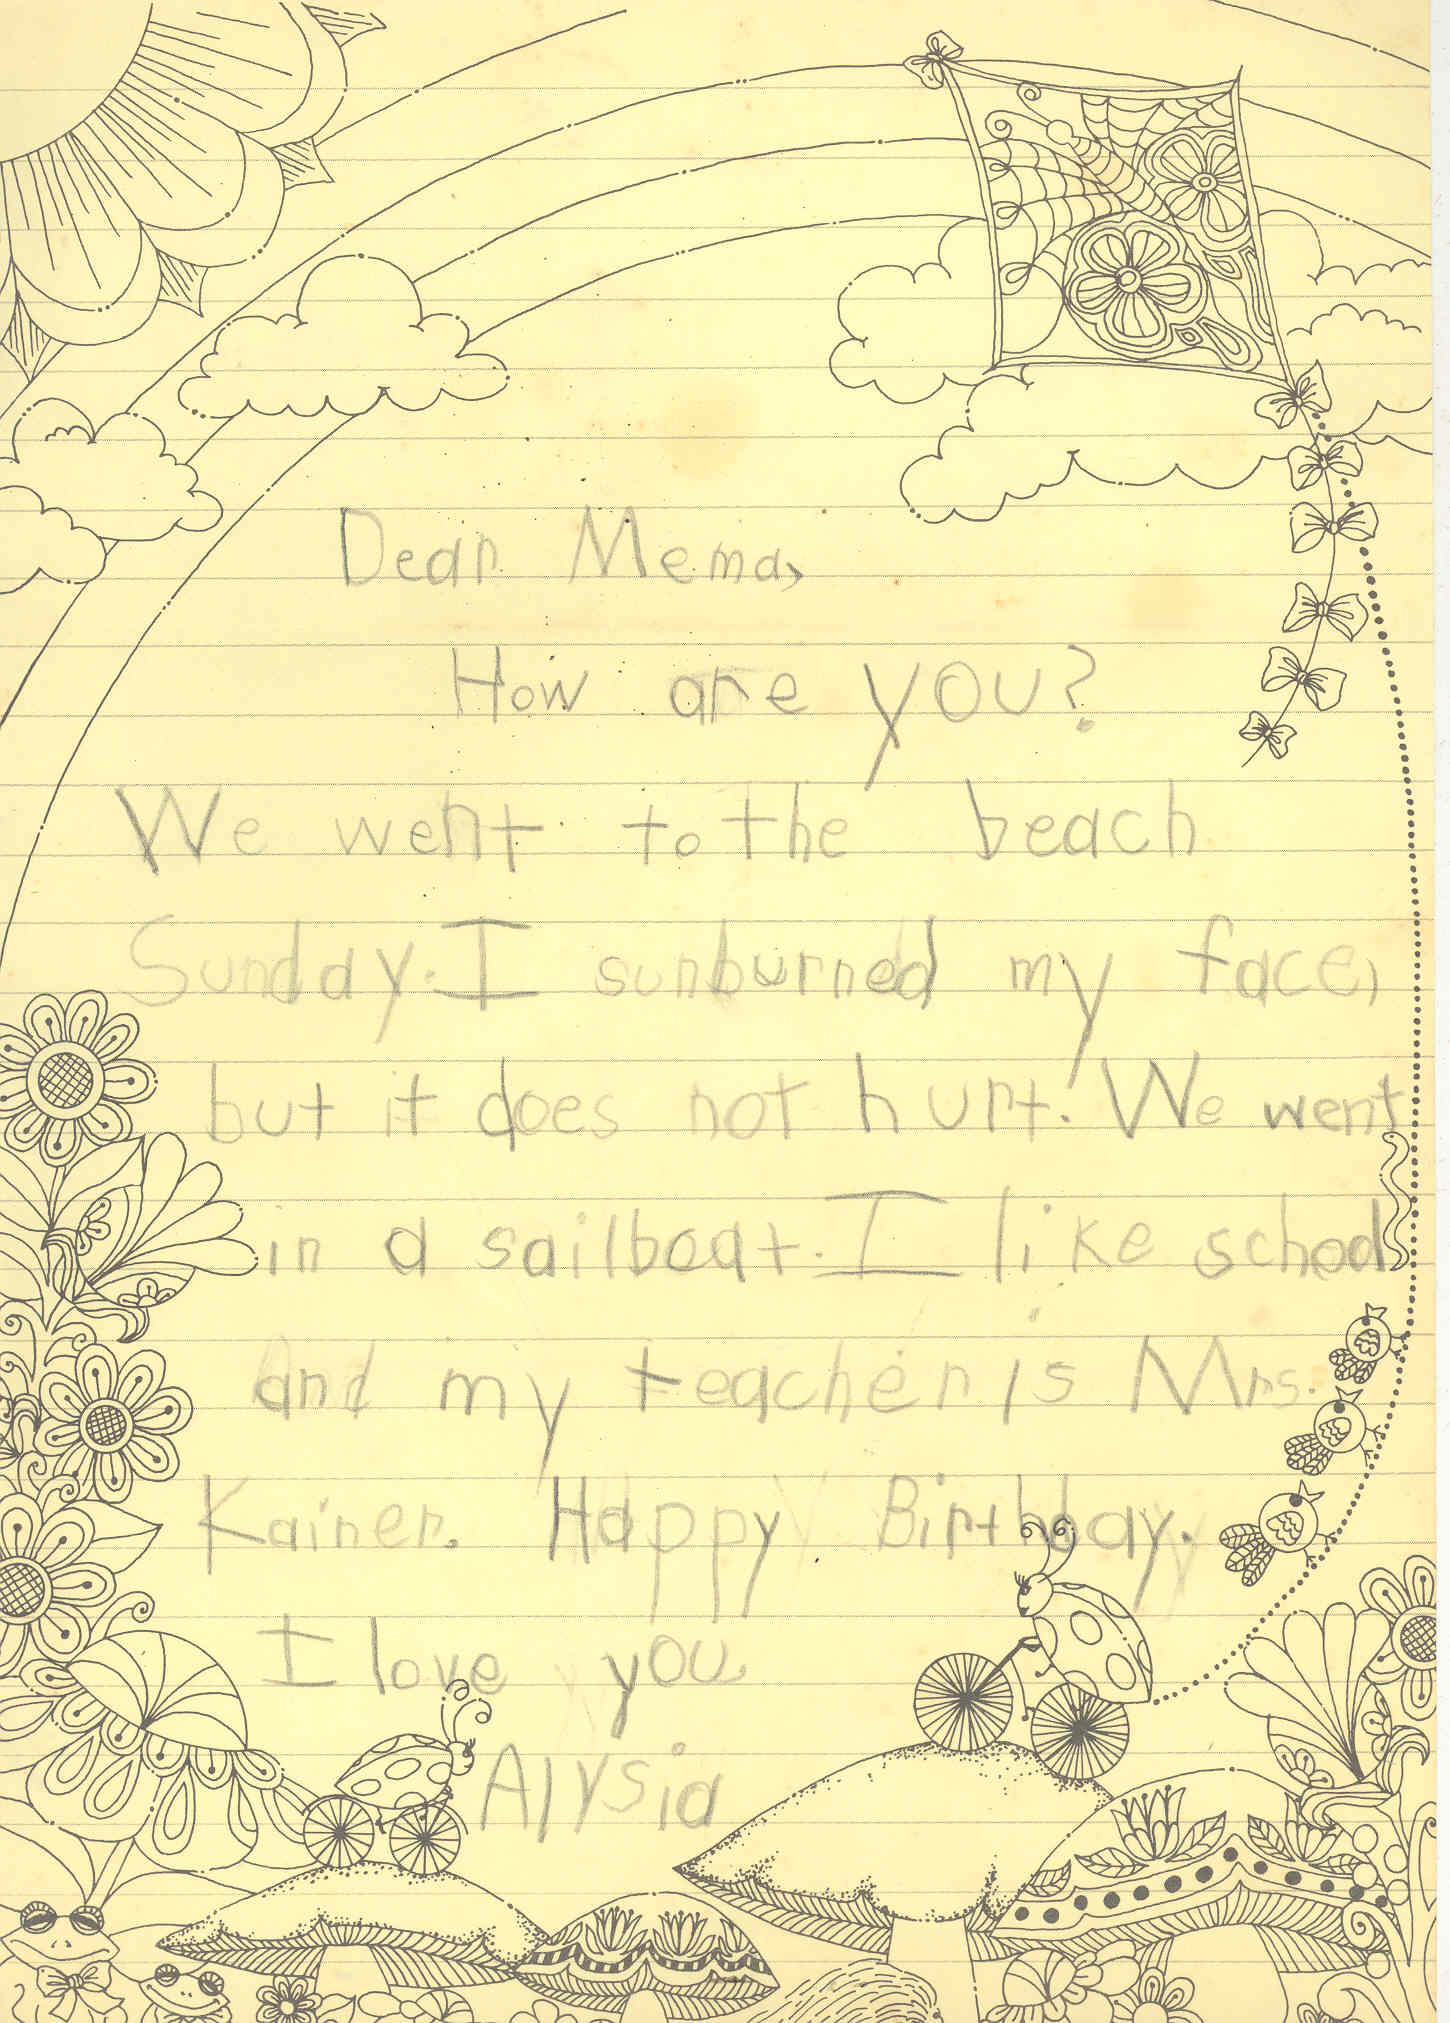 Dear Mema,
How are you?
We went to the beach
Sunday. I sunburned my face,
but it does not hurt. We went
in a sailboat. I like school
and my teacher is Mrs.
Kainer. Happy Birthday.
I love you
Alysia